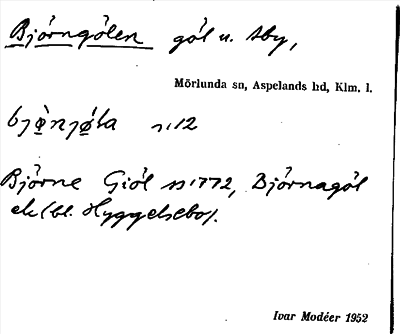 Björngölen göl u. Åby,
Mörlunda sn, Aspelands hd, Klm. l.
bjö̀njö́la n:12
Björne Giöl 1772, Björnagöl
ek (bl. Hyggelsebo).
Ivar Modéer 1952